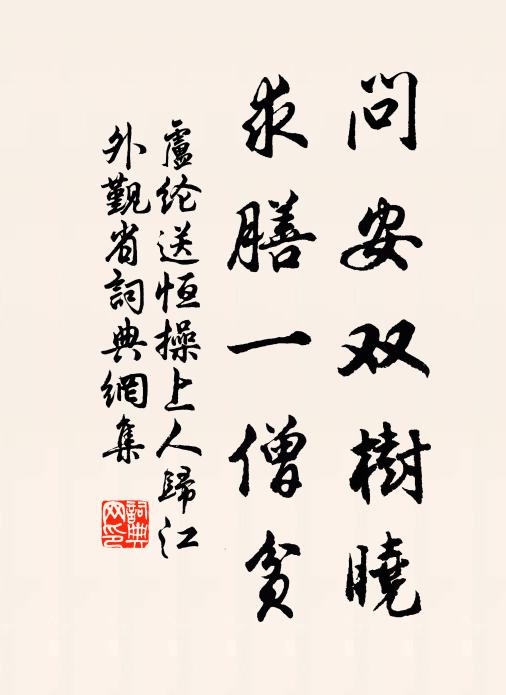 问安双樹曉
求膳一僧貧
盧纶送恒操上人歸江
外觐省詞典網集
詞典网印